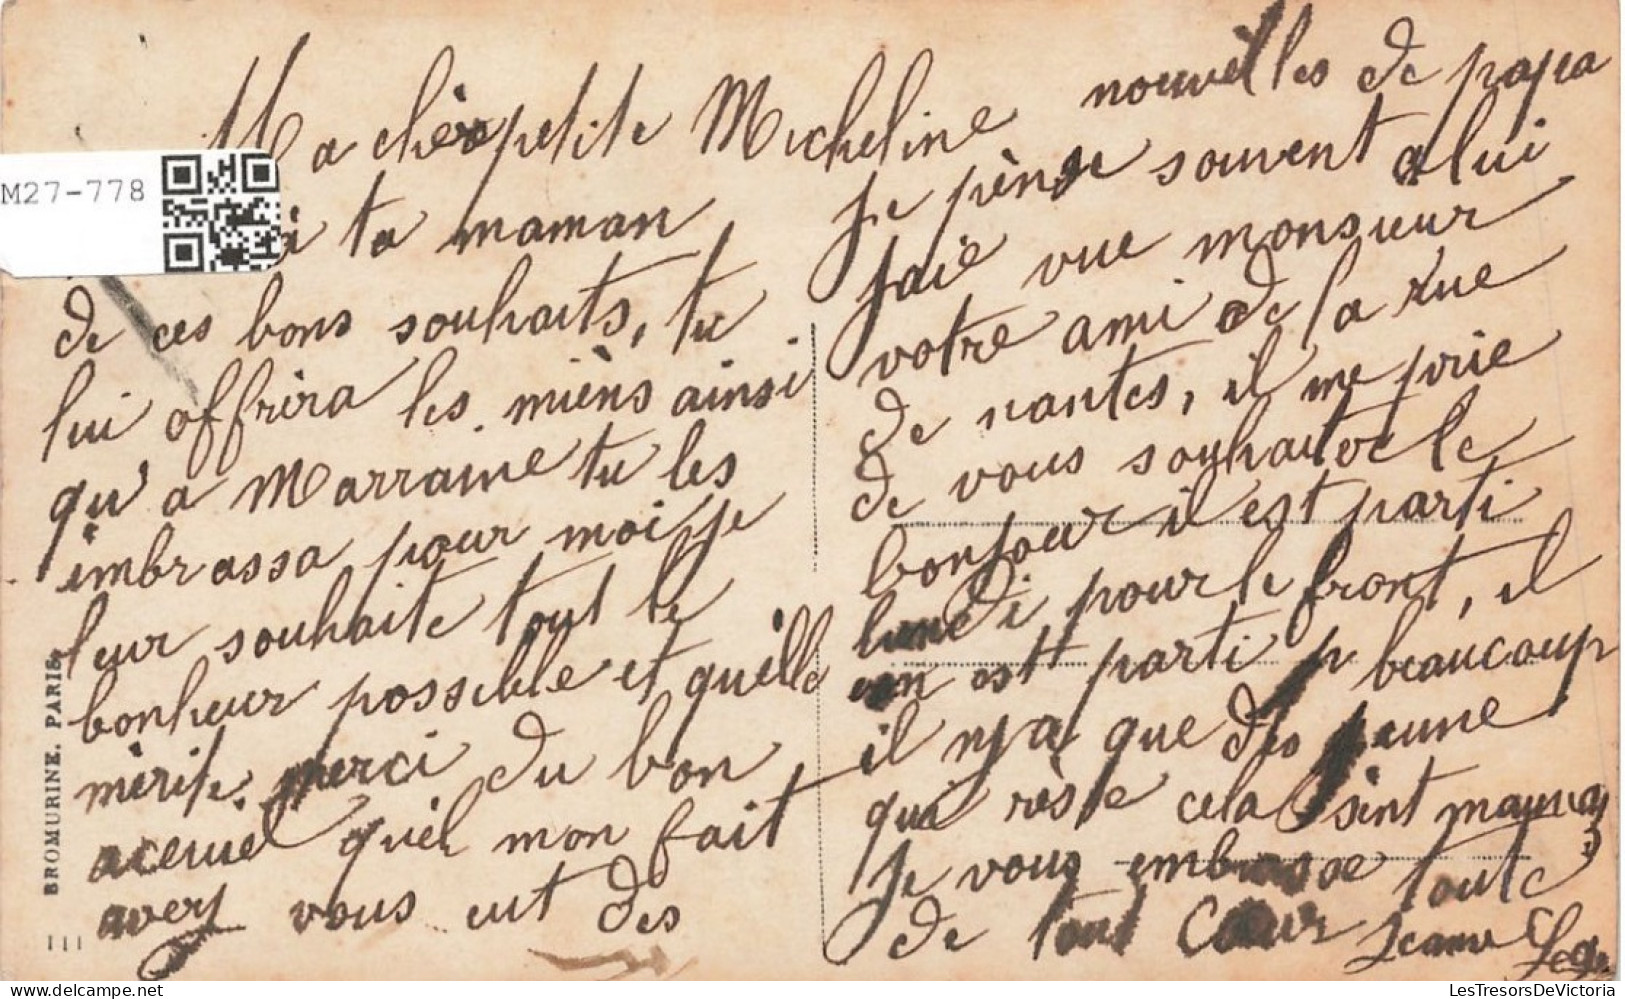 M27-778
Ma chère petite Micheline
ta maman
de ces bons souhaits, tu
lui offrira les miens ainsi
qu'a Marraine tu les
embrassa pour moi je
leur souhaite tout le
bonheur possible et quèlle
mèrite. merci du bon
aceuel quèl mon fait
avez vous eut des
nouvelles de papa
Je pènse souvent a lui
Jaie vue monsieur
votre ami de la rue
de nantes, il me prie
de vous souhaiter le
bonjour il est parti
lundi pour le front, il
en est parti beaucoup
il ny a que des jeune
qui rèste cela sent mauvais
Je vous embrasse toute
de tout Cœur Jeanne
BROMURINE. PARIS.
III
LesTresorsDeVictoria